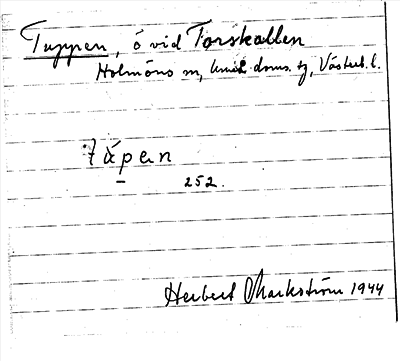 Tuppen, ö vid Torskallen
Holmöns sn, Umeå doms. tg, Västerb. l.
252.
Herbert Markström 1944